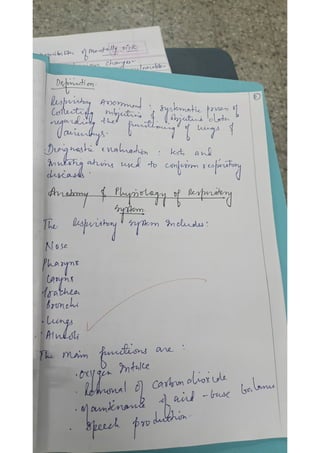 of mentally sick
changes.
Definition
Respiratory Assessment : systematic process of
collecting subjective & objective data
regarding the functioning of lungs &
airways.
Diagnostic evaluation : tests and
investigations used to confirm respiratory
diseases.
Anatomy & Physiology of respiratory
system
The Respiratory system includes:
Nose
Pharynx
Larynx
Trachea
Bronchi
· Lungs
· Alveoli
The main functions are :
· Oxygen intake
· Removal of carbondioxide
· Maintenance of acid - base balance
· Speech production.